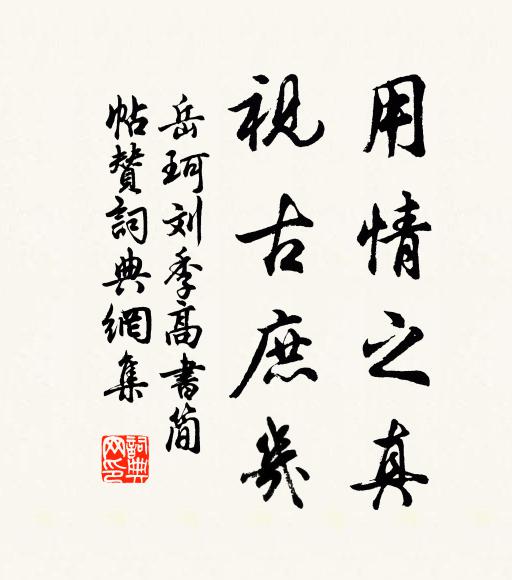 用情之真
視古庶幾
岳珂刘季高書简
帖賛詞典網集
詞典网印